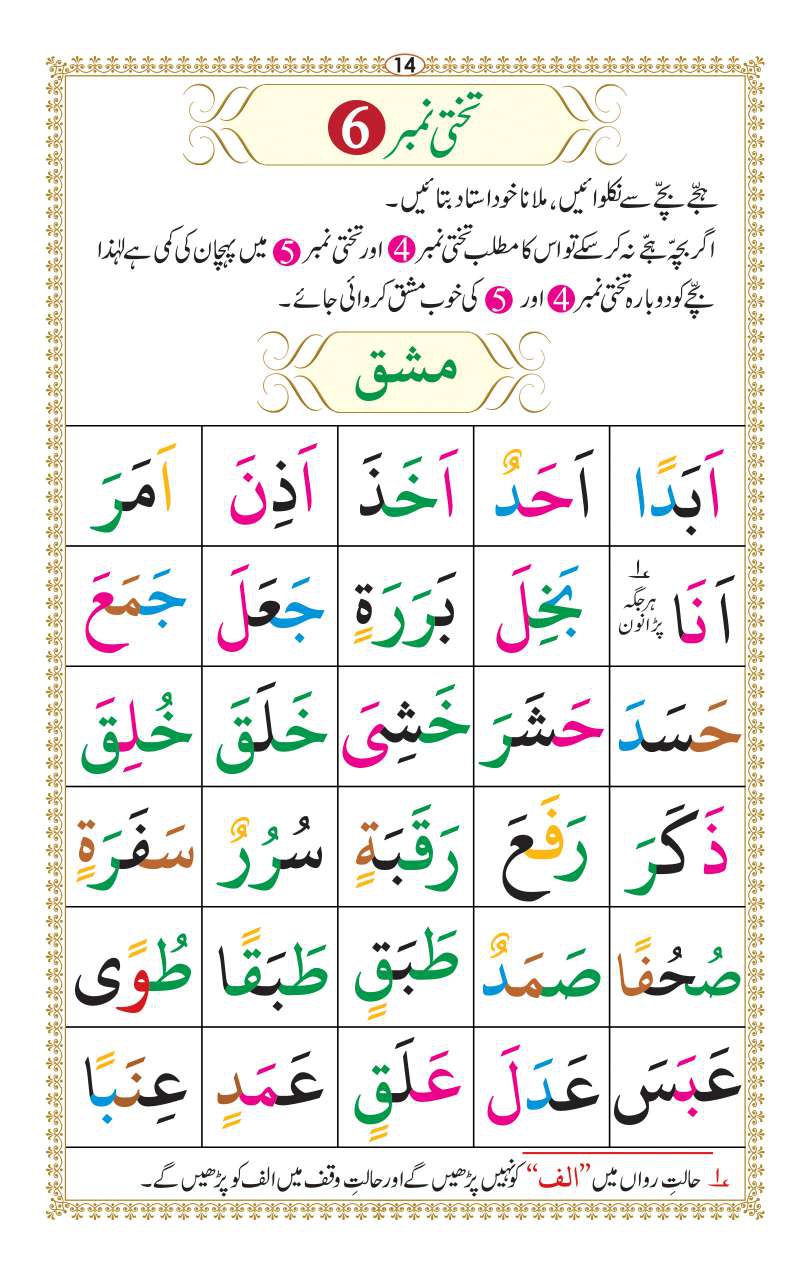 14
تختی نمبر 6
ہجّے بچّے سے نکلوائیں، ملانا خود استاد بتائیں۔
اگر بچہّ ہجّے نہ کر سکے تو اس کا مطلب تختی نمبر 4 اور تختی نمبر 5 میں پہچان کی کمی ہے لہٰذا
بچّے کو دوبارہ تختی نمبر 4 اور 5 کی خوب مشق کروائی جائے۔
مشق
اَبَدًا اَحَدٌ اَخَذَ اَذِنَ اَمَرَ
اَنَا ۱؎ ہر جگہ پڑا نون بَخِلَ بَرَرَةٍ جَعَلَ جَمَعَ
حَسَدَ حَشَرَ خَشِیَ خَلَقَ خُلِقَ
ذَكَرَ رَفَعَ رَقَبَةٍ سُرُرٌ سَفَرَةٍ
صُحُفًا صَمَدٌ طَبَقٍ طَبَقًا طُوًی
عَبَسَ عَدَلَ عَلَقٍ عَمَدٍ عِنَبًا
۱؎ حالتِ رواں میں ”الف“ کو نہیں پڑھیں گے اور حالتِ وقف میں الف کو پڑھیں گے۔